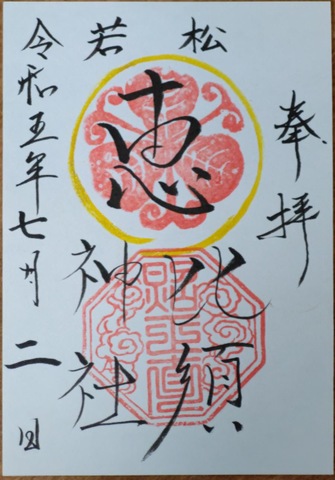 奉拝
若松
恵
比須
神社
令和五年七月二日